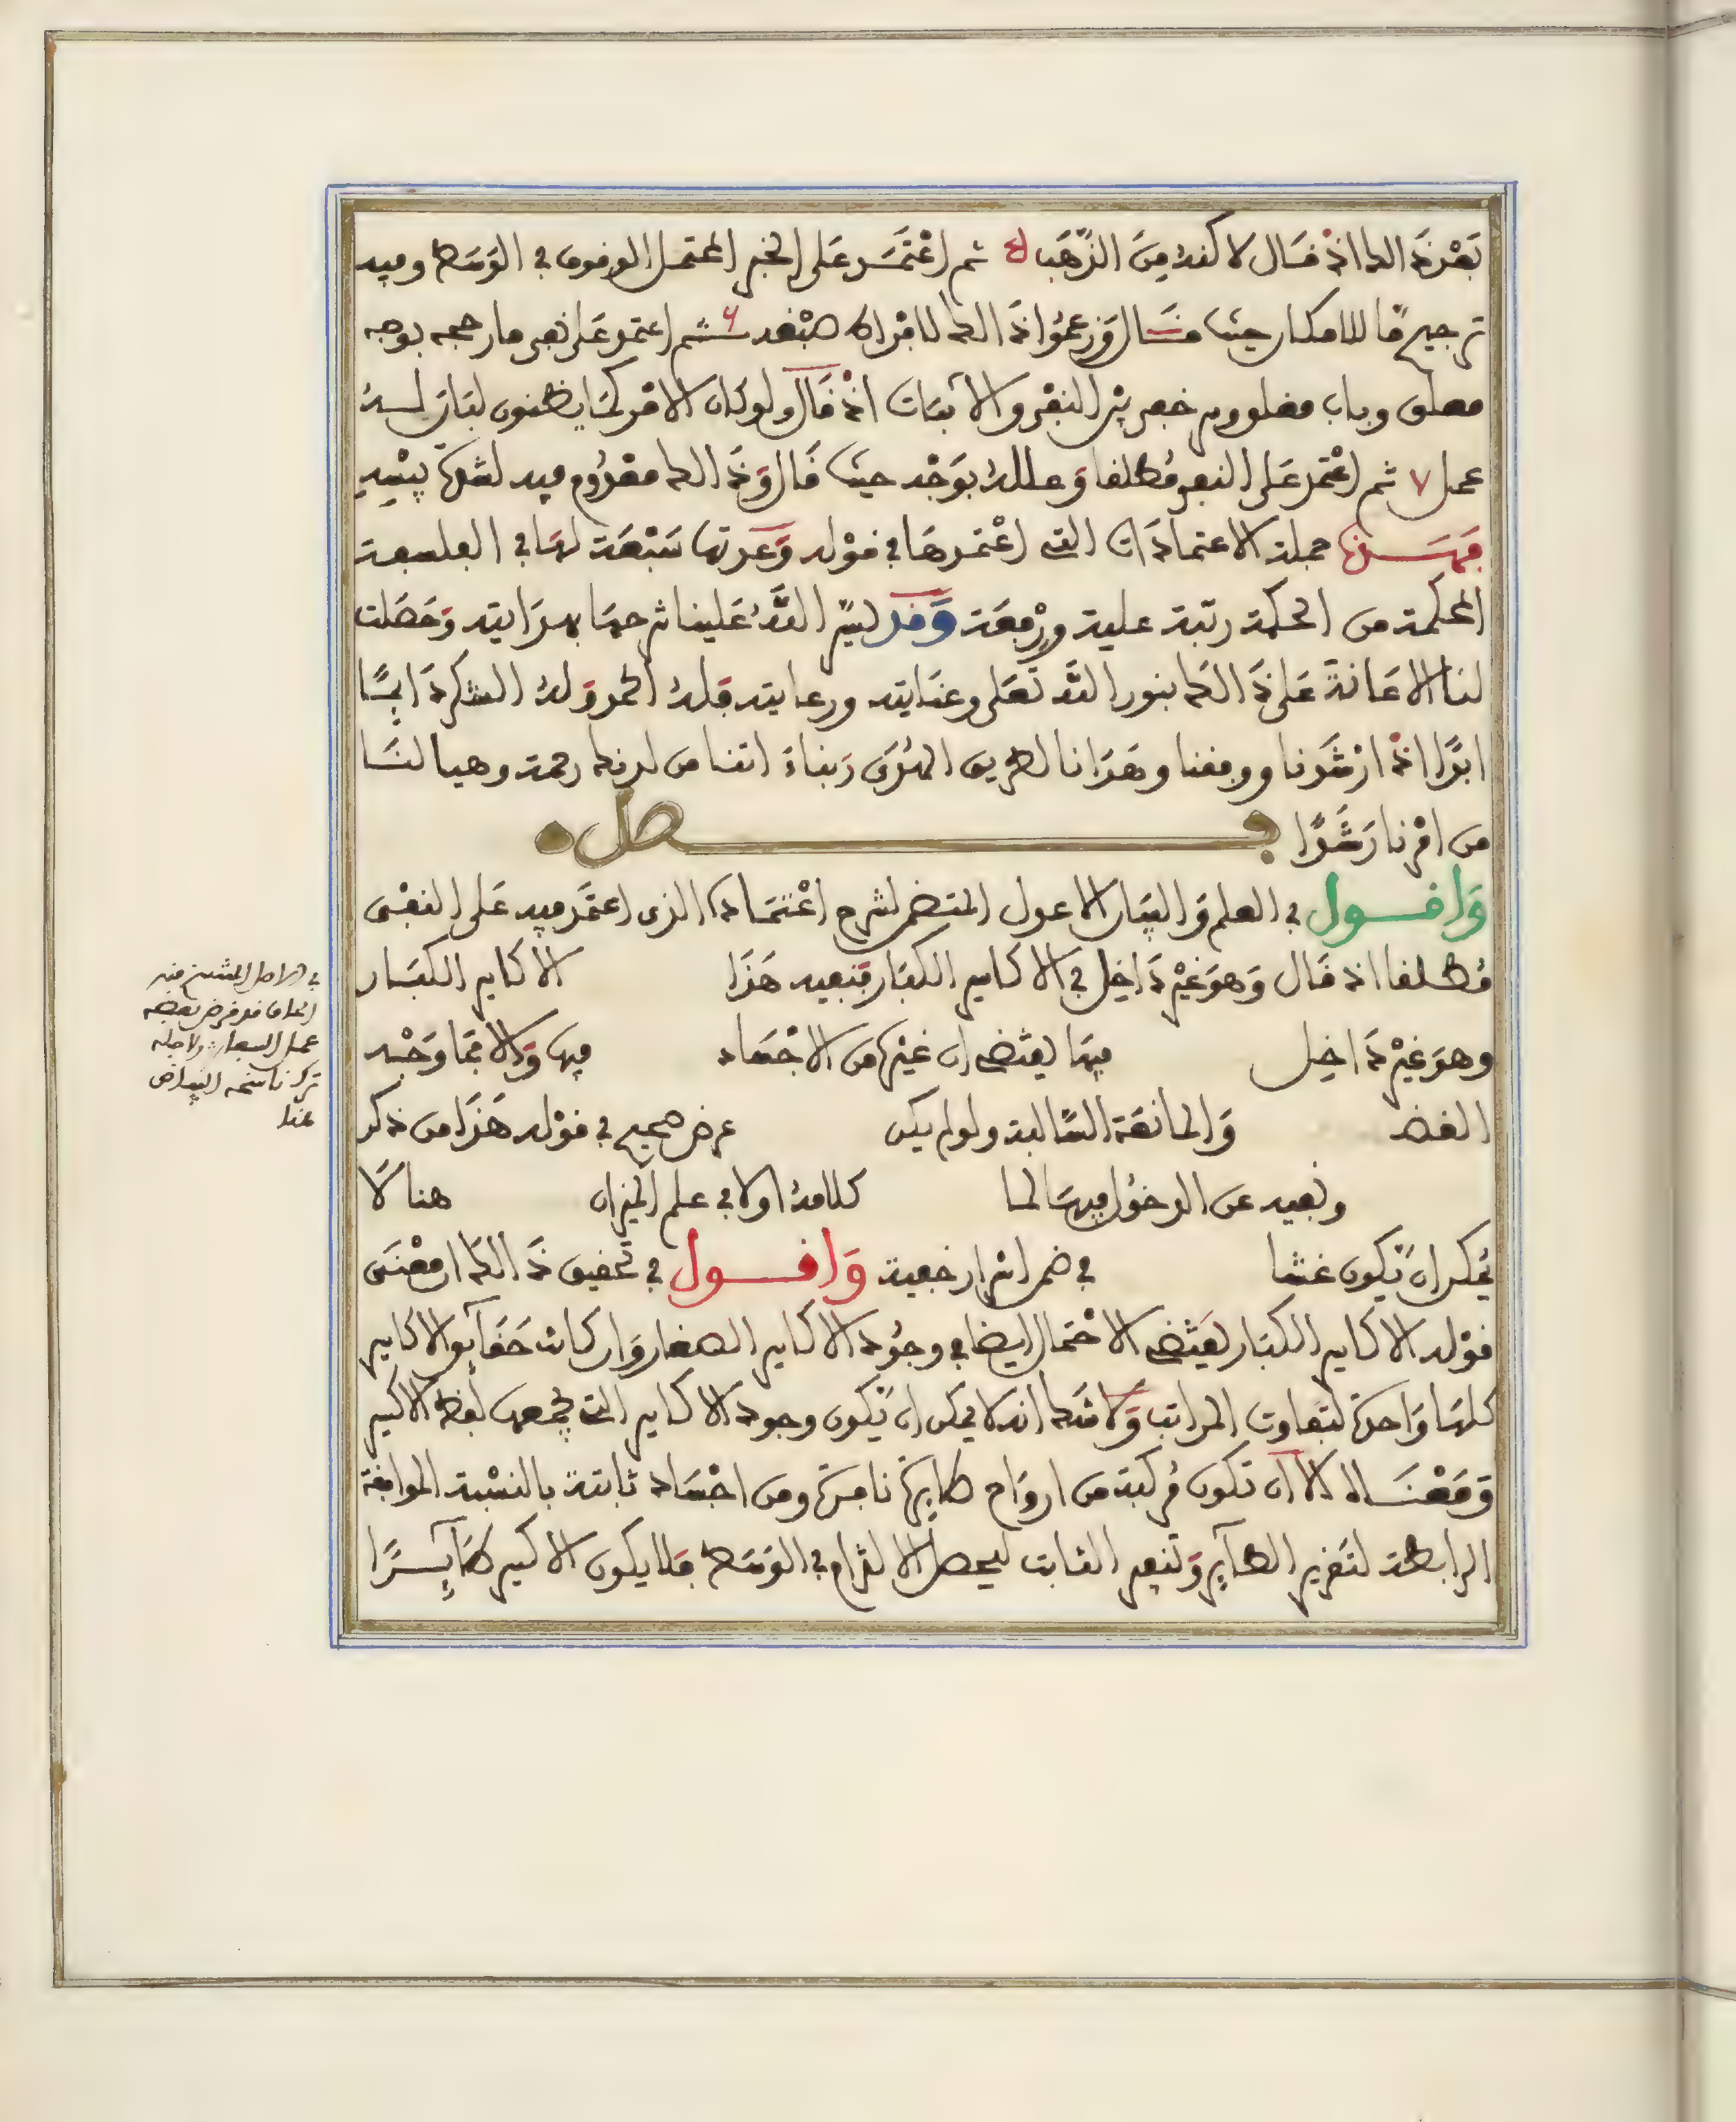 بَعْد ذَالك اذْ قال لاكنه مِنَ الذّهَب ٥ ثم اعْتَمَد عَلى الخبر المحتمل الوقوف في الوَسَط وفيه
ترجيح مّا للامكان حيث قَال وَزعمُوا ذَالك لامْراة صْبغه ٦ ثم اعتمد عَلى نفى ما رجحه بوجه
مطلق وباب مغلق وبرزخ بيْن النفْى والاثبات اذْ قَال ولو كان الامْر كمَا يظنون لبَان لـه
عمل ٧ ثم اعْتمد عَلى النفى مُطلقا وَعلله بوَجْه حيث قَال وَذَالك معْدُوم فيه لشهْرة بيْنيه
فهَـذه جملة الاعتمادَات التى اعْتمدهَا في قوْله وَعدتها سَبْعَة لهَا في الفلسفة
المحكمة من الحكمة رتبة علية ورِفعَة وَقد يسّر اللَّهُ عَلينا شرحهَا بهدَايته وَحَصَلت
لنا الاعَانة عَلى ذَالك بنور اللَّه تعَلى وعنَايته ورعايته فله الحمد وَله الشكر دَايمًا
ابدًا اذْ ارْشَدنا ووفقنا وهَدَانا لطريق الهُدَى رَبناءَ اتنا من لدنك رحمة وهيا لنَا
من امْرنا رَشَدًا فـصل
وَاقـول في العلم وَالبيَان الاعول المتضمن لشرح اعْتمَاده الذى اعتَمد فيه عَلى النفْى
مُطلقا اذ قَال وَهوَ غيْر دَاخِل في الاكاسير الكبَار فنفيه هَذَا الاكاسير الكبَـار
وهوَ غيْر دَاخِل فيهَا يقتضى ان غيْره من الاجْسَاد فيها وَالا فمَا وَجْه
الفضـ وَالمانعَة السَّالبة ولو لم يكن غرض صحيح في قوْله هَذَا من ذكر
ونفيه عن الدخُول فيهَا لما كلامهُ اولا في علم الميزان هنا لَا
يُمكن ان يّكون عَبثا في ضمن اسْرار خفية وَاقـول في تحقيق ذَالك ان معْنَى
قوْله الاكاسير الكبَار يقتضى الاحْتمال ايضا في وجُود الاكاسير الصغار وَان كانت حَقايق الاكاسير
كلهَا وَاحدة لتفاوت المراتب وَلا شَك انه لا يمكن ان يّكون وجود الاكاسير التى يجمعها لفظ الاكسير
وَمَعْنَـاه الا ان تكون مُركبة من ارواح طايرة نافرة ومن اجْسَاد ثابتة بالنسْبة الموافقة
الرابطة لتقرير الطآير وَتنفير الثابت ليحصل الالتزام في الوَسَط فلا يكون الاكسير طَآيـرًا
في الاصل المنتسخ منه
عمل السـ ولاجله
ترك ناسخه البياض
هنا